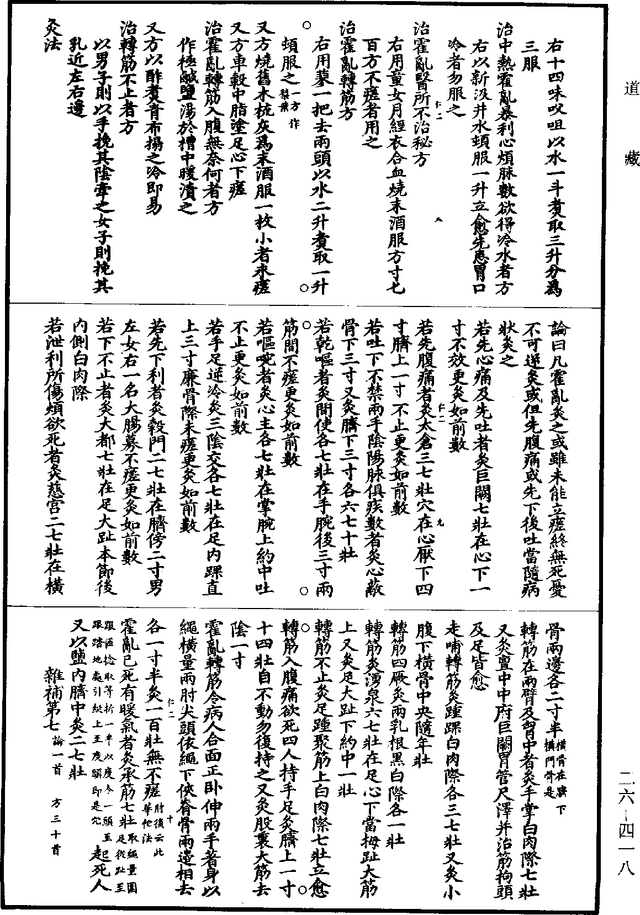 道藏
右十四味㕮咀以水一斗煮取三升分爲
三服
治中熱霍亂暴利心煩脉數欲得冷水者方
右以新汲井水頓服一升立愈先患胃口
冷者勿服之
治霍亂醫所不治秘方
右用童女月經衣合血燒末酒服方寸匕
百方不瘥者用之
治霍亂轉筋方
右用蓼一把去兩頭以水二升煮取一升
頓服之一方作
又方燒舊木梳灰爲末酒服一枚小者永瘥
又方車轂中脂塗足心下瘥
治霍亂轉筋入腹無奈何者方
作極鹹鹽湯於槽中暖漬之
又方以酢煮青布搨之冷即易
治轉筋不止者方
以男子則以手挽其陰牽之女子則挽其
乳近左右邊
灸法
論曰凡霍亂灸之或雖未能立瘥終無死憂
不可逆灸或但先腹痛或先下後吐當隨病
狀灸之
若先心痛及先吐者灸巨闕七壯在心下一
寸不效更灸如前數
若先腹痛者灸太倉二七壯穴在心厭下四
寸臍上一寸不止更灸如前數
若吐下不禁兩手陰陽脉俱疾數者灸心蔽
骨下三寸又灸臍下三寸各六七十壯
若乾嘔者灸間使各七壯在手腕後三寸兩
筋間不瘥更灸如前數
若嘔啘者灸心主各七壯在掌腕上約中吐
不止更灸如前數
若手足逆冷灸三陰交各七壯在足内踝直
上三寸廉骨際未瘥更灸如前數
若先下利者灸穀門二七壯在臍傍二寸男
左女右一名大腸募不瘥更灸如前數
若下不止者灸大都七壯在足大趾本節後
内側白肉際
若泄利所傷煩欲死者灸慈宫二七壯在横
骨兩邊各二寸半横骨在臍下横門骨是
轉筋在兩臂及胷中者灸手掌白肉際七壯
又灸亶中中府巨闕胃管尺澤并治筋拘頭
及足皆愈
走哺轉筋灸踵踝白肉際各三七壯又灸小
腹下横骨中央隨年壯
轉筋四厥灸兩乳根黑白際各一壯
轉筋灸湧泉六七壯在足心下當拇趾大筋
上又灸足大趾下約中一壯
轉筋不止灸足踵聚筋上白肉際七壯立愈
轉筋入腹痛欲死四人持手足灸臍上一寸
十四壯自不動勿復持之又灸股裏大筋去
陰一寸
霍亂轉筋令病人合面正卧伸兩手著身以
繩横量兩肘尖頭依繩下俠脊骨兩邊相去
各一寸半灸一百壯無不瘥肘後云此華佗法
霍亂已死有暖氣者灸承筋七壯取繩量圍足從趾至跟匝捻取等折一半以度令一頭至跟踏地處引綖上至度頭即是穴起死人
又以鹽内臍中灸二七壯
雜補第七論一首 方三十首
二六—四一八